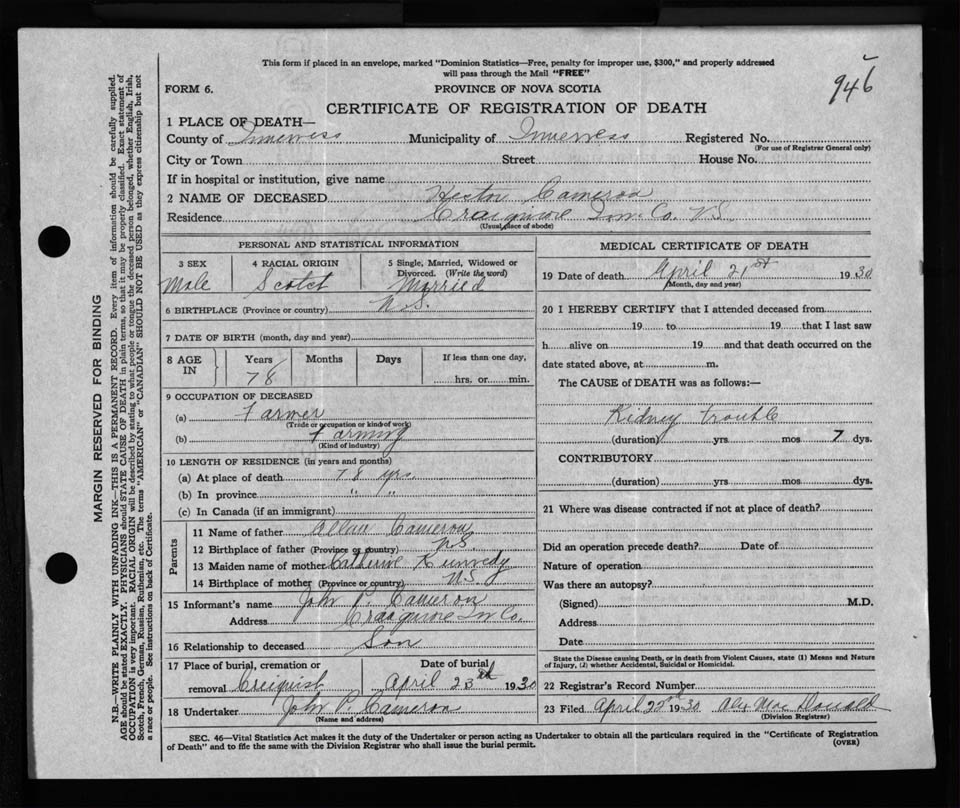 This form if placed in an envelope, marked "Dominion Statistics—Free, penalty for improper use, $300," and properly addressed
will pass through the Mail "FREE"
946
FORM 6. PROVINCE OF NOVA SCOTIA
CERTIFICATE OF REGISTRATION OF DEATH
1 PLACE OF DEATH—
County of Inverness Municipality of Inverness Registered No.
(For use of Registrar General only)
City or Town Street House No.
If in hospital or institution, give name
2 NAME OF DECEASED Hector Cameron
Residence Craigmore Inv. Co. N.S.
(Usual place of abode)
PERSONAL AND STATISTICAL INFORMATION
3 SEX 4 RACIAL ORIGIN 5 Single, Married, Widowed or
Divorced. (Write the word)
Male Scotch Married
6 BIRTHPLACE (Province or country) N.S.
7 DATE OF BIRTH (month, day and year)
8 AGE IN Years Months Days If less than one day,
78 hrs. or min.
9 OCCUPATION OF DECEASED
(a) Farmer
(Trade or occupation or kind of work)
(b) Farming
(Kind of industry)
10 LENGTH OF RESIDENCE (in years and months)
(a) At place of death 78 yrs.
(b) In province " "
(c) In Canada (if an immigrant)
Parents
11 Name of father Allan Cameron
12 Birthplace of father (Province or country) N.S.
13 Maiden name of mother Catherine Kennedy
14 Birthplace of mother (Province or country) N.S.
15 Informant's name John P. Cameron
Address Craigmore Inv Co.
16 Relationship to deceased Son
17 Place of burial, cremation or Date of burial
removal Creignish April 23rd 1930
18 Undertaker John P. Cameron
(Name and address)
MEDICAL CERTIFICATE OF DEATH
19 Date of death April 21st 1930
(Month, day and year)
20 I HEREBY CERTIFY that I attended deceased from
19 to 19 that I last saw
h alive on 19 and that death occurred on the
date stated above, at m.
The CAUSE of DEATH was as follows:—
Kidney trouble
(duration) yrs mos 7 dys.
CONTRIBUTORY
(duration) yrs mos dys.
21 Where was disease contracted if not at place of death?
Did an operation precede death? Date of
Nature of operation
Was there an autopsy?
(Signed) M.D.
Address
Date
State the Disease causing Death, or in death from Violent Causes, state (1) Means and Nature
of Injury, (2) whether Accidental, Suicidal or Homicidal.
22 Registrar's Record Number
23 Filed April 22nd 1930 Alex MacDonald
(Division Registrar)
SEC. 46—Vital Statistics Act makes it the duty of the Undertaker or person acting as Undertaker to obtain all the particulars required in the "Certificate of Registration
of Death" and to file the same with the Division Registrar who shall issue the burial permit.
(OVER)
MARGIN RESERVED FOR BINDING
N.B.—WRITE PLAINLY WITH UNFADING INK—THIS IS A PERMANENT RECORD. Every item of information should be carefully supplied.
AGE should be stated EXACTLY. PHYSICIANS should STATE CAUSE OF DEATH in plain terms, so that it may be properly classified. Exact statement of
OCCUPATION is very important. RACIAL ORIGIN will be described by stating to what people or tongue the deceased person belonged, whether English, Irish,
Scotch, French, German, Russian, Ruthenian, etc. The terms "AMERICAN" or "CANADIAN" SHOULD NOT BE USED as they express citizenship but not
a race or people. See instructions on back of Certificate.